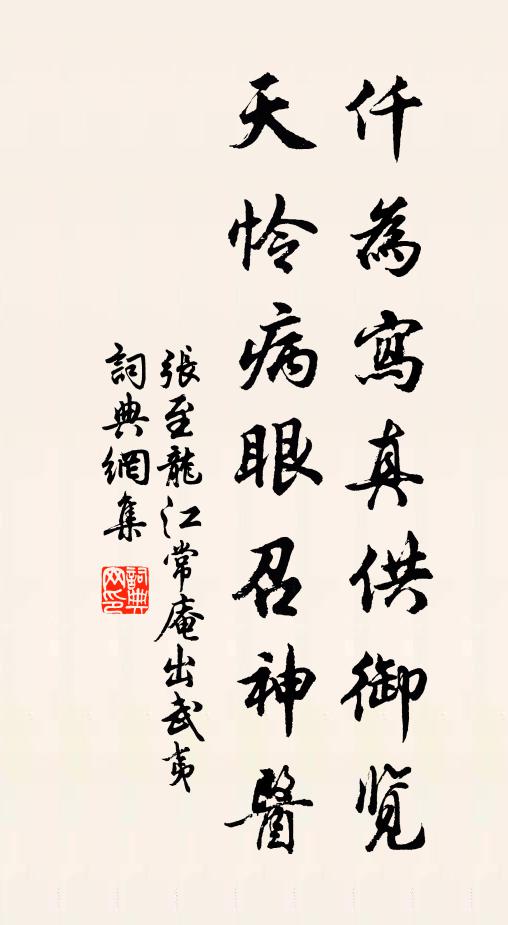 仟為寫真供御览
天怜病眼召神醫
張至龍江常庵出武夷
詞典網集
詞典網印